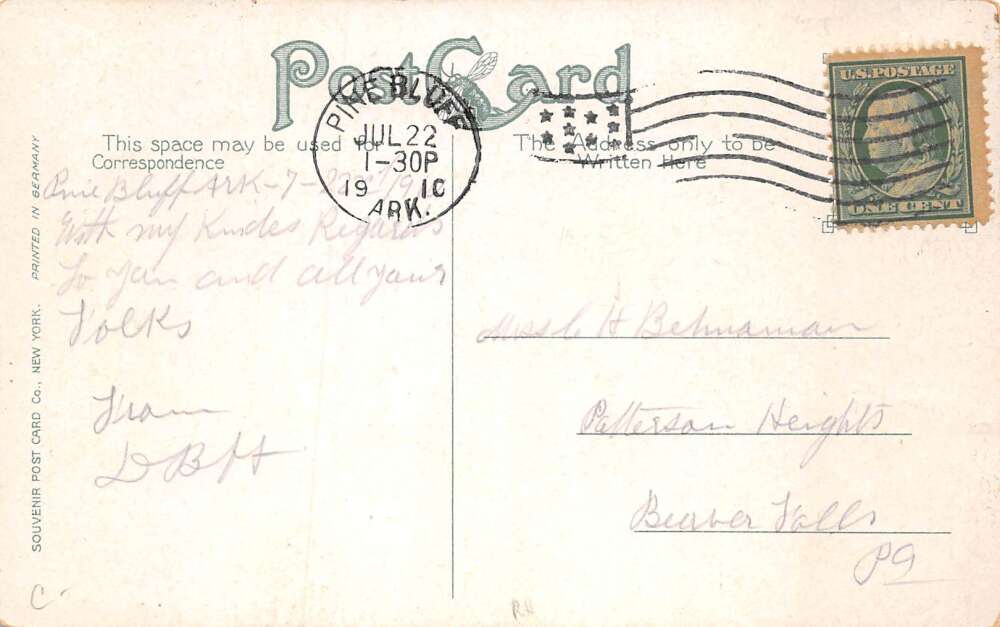 Post Card
This space may be used for
Correspondence
The Address only to be
Written Here
PINE BLUFF
JUL 22
1-30P
19 10
ARK.
U.S. POSTAGE
ONE CENT
Pine Bluff ARK-7-22
With my Kindes Regards
To You and all your
Folks
From
D B H
Miss C H Behnaman
Patterson Heights
Beaver Falls
Pa
SOUVENIR POST CARD Co., NEW YORK. PRINTED IN GERMANY
C-